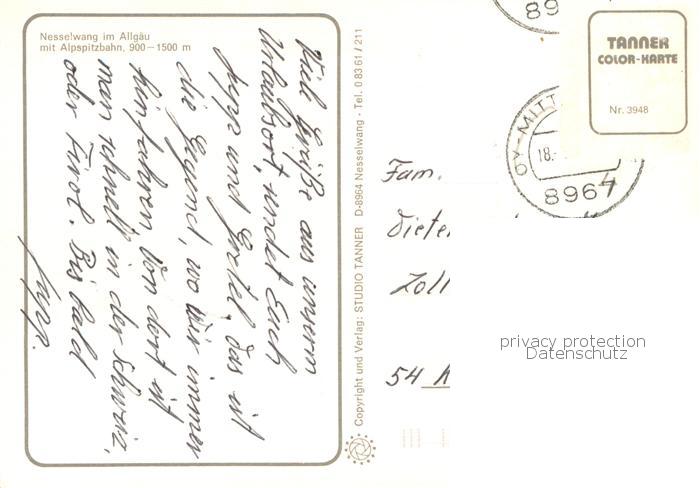 Nesselwang im Allgäu
mit Alpspitzbahn, 900–1500 m
Viel Grüße aus unserm
Urlaubsort, sendet Euch
Jupp und Gretel, das ist
die Gegend, wo wir immer
hinfahren von dort ist
man schnell in der Schweiz,
oder Tirol. Bis bald
Jupp.
Copyright und Verlag: STUDIO TANNER D-8964 Nesselwang - Tel. 0 83 61 / 211
89
TANNER
COLOR-KARTE
Nr. 3948
OY-MITT
18.
8967
Fam.
Dieter
Zoll
54
privacy protection
Datenschutz